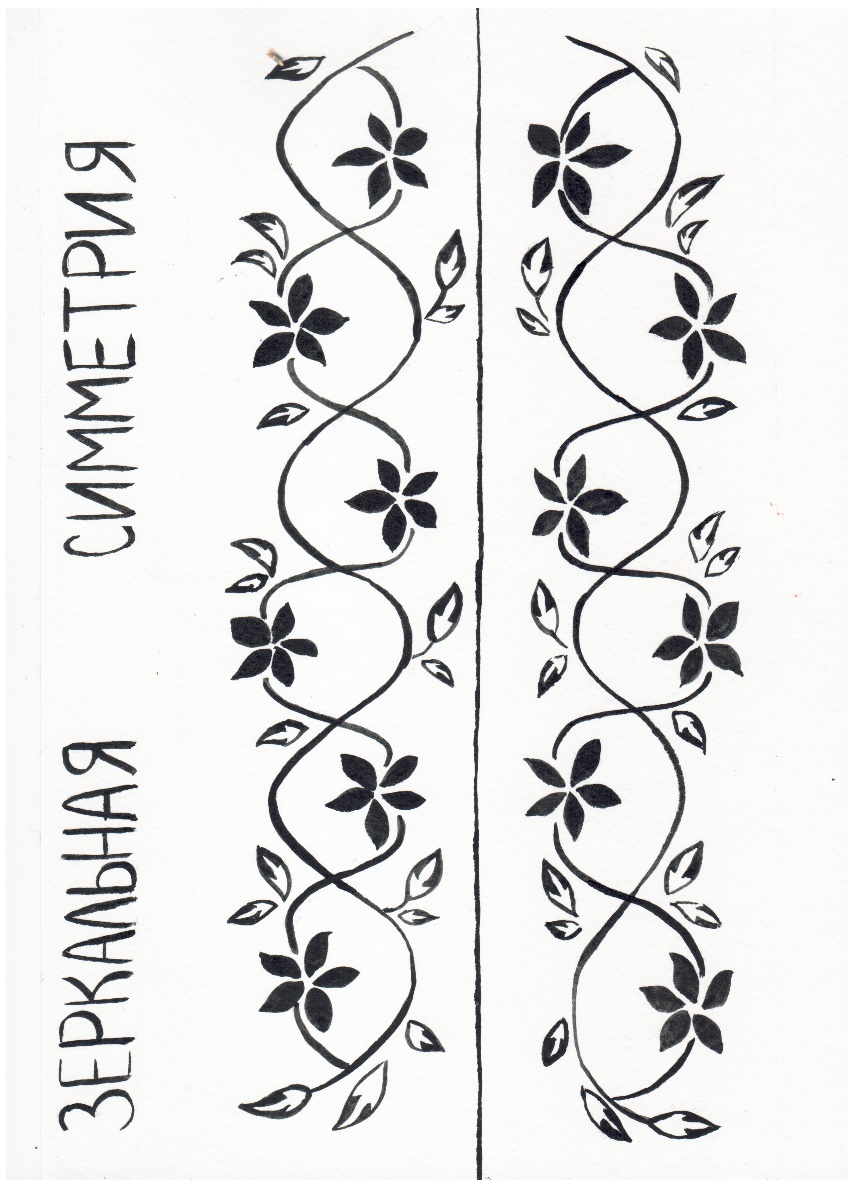 ЗЕРКАЛЬНАЯ СИММЕТРИЯ